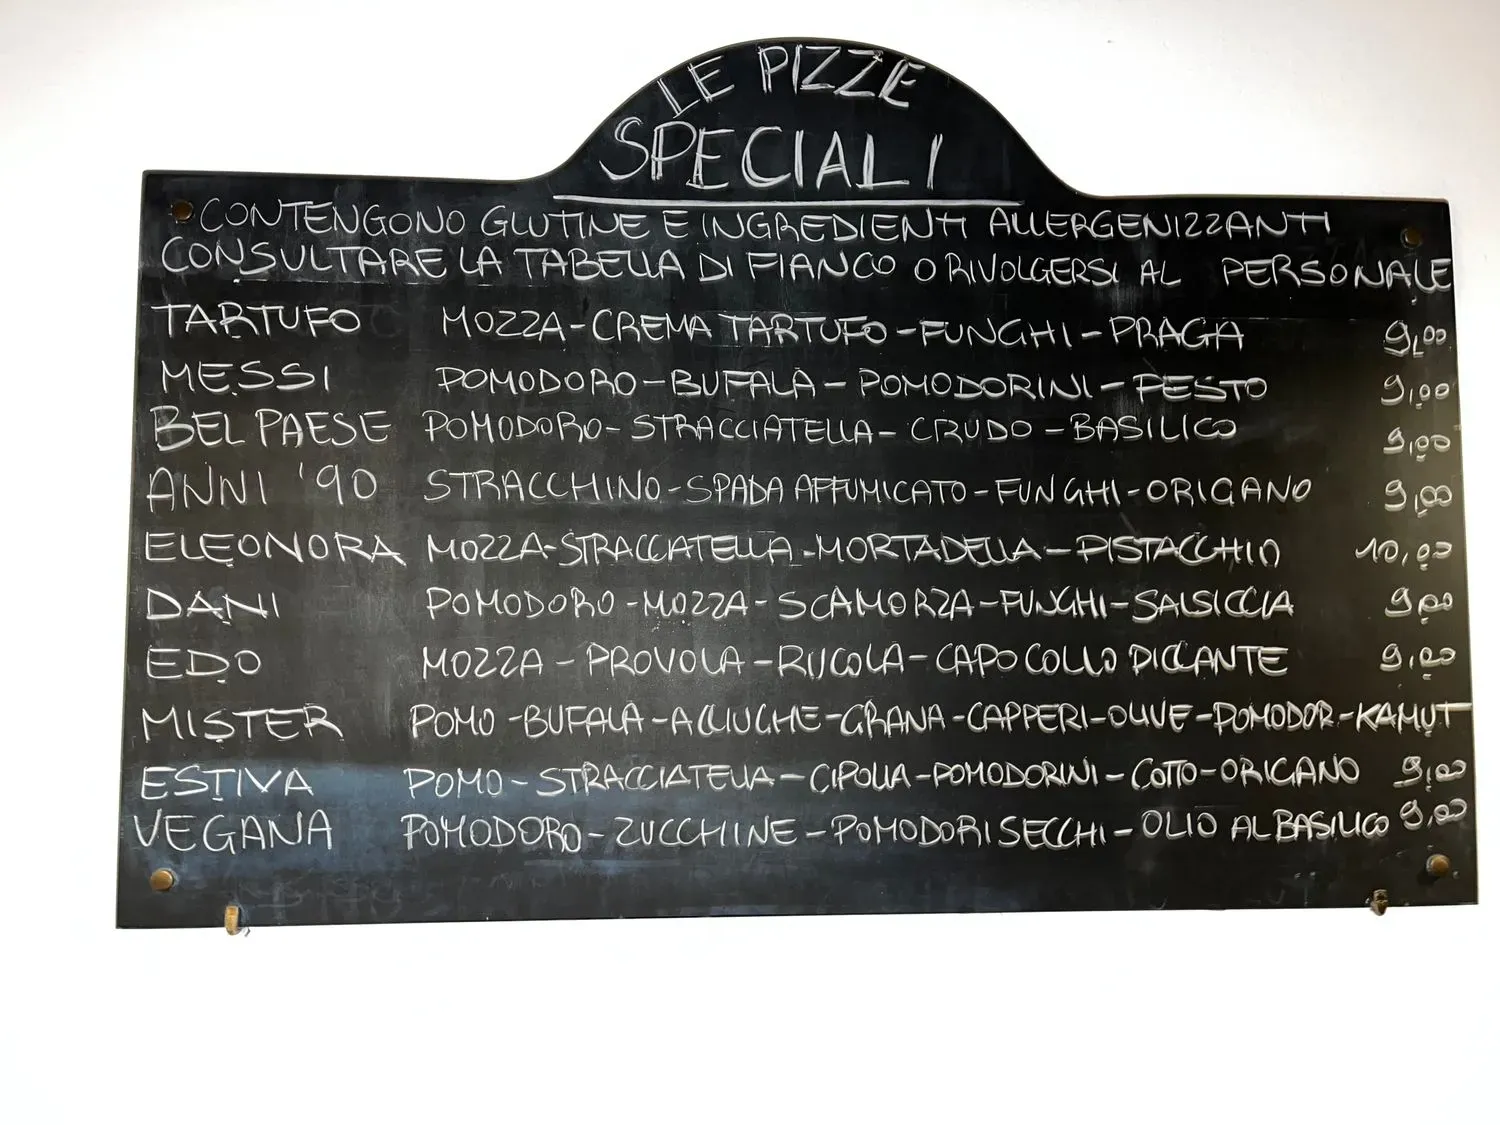 LE PIZZE
SPECIALI
CONTENGONO GLUTINE E INGREDIENTI ALLERGENIZZANTI
CONSULTARE LA TABELLA DI FIANCO O RIVOLGERSI AL PERSONALE
TARTUFO MOZZA-CREMA TARTUFO-FUNGHI-PRAGA 9,00
MESSI POMODORO-BUFALA-POMODORINI-PESTO 9,00
BEL PAESE POMODORO-STRACCIATELLA-CRUDO-BASILICO 9,00
ANNI '90 STRACCHINO-SPADA AFFUMICATO-FUNGHI-ORIGANO 9,00
ELEONORA MOZZA-STRACCIATELLA-MORTADELLA-PISTACCHIO 10,00
DANI POMODORO-MOZZA-SCAMORZA-FUNGHI-SALSICCIA 9,00
EDO MOZZA-PROVOLA-RUCOLA-CAPOCOLLO PICCANTE 9,00
MISTER POMO-BUFALA-ACCIUGHE-GRANA-CAPPERI-OLIVE-POMODOR-KAMUT
ESTIVA POMO-STRACCIATELLA-CIPOLLA-POMODORINI-COTTO-ORIGANO 9,00
VEGANA POMODORO-ZUCCHINE-POMODORI SECCHI-OLIO AL BASILICO 9,00